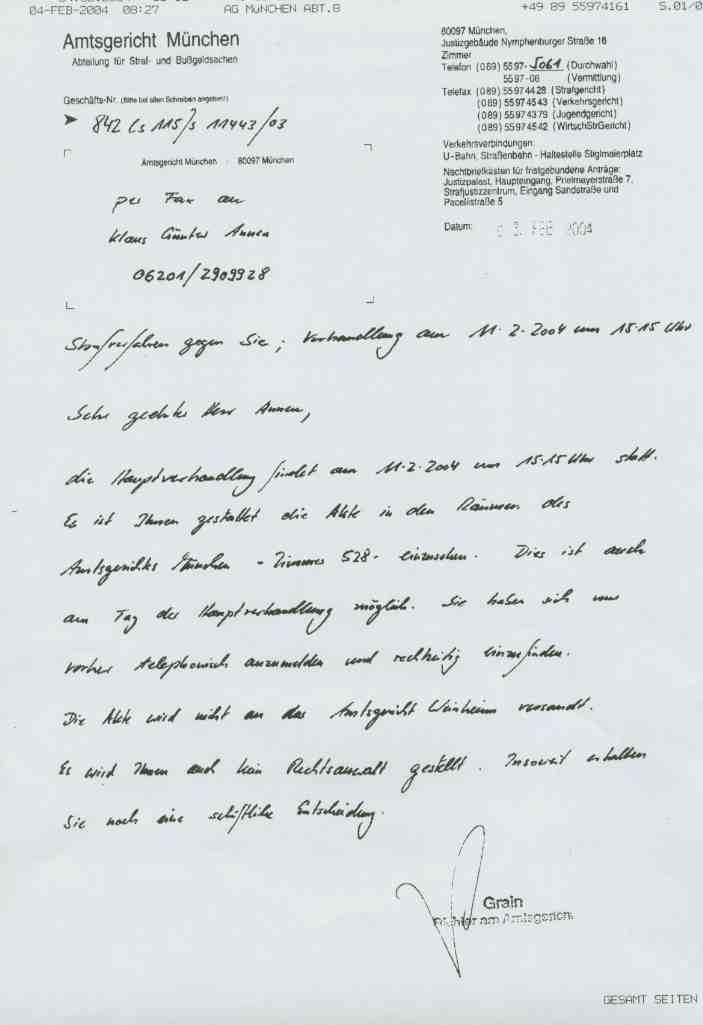 04-FEB-2004 08:27 AG MÜNCHEN ABT.8 +49 89 55974161 S.01/0
Amtsgericht München
Abteilung für Straf- und Bußgeldsachen
80097 München,
Justizgebäude Nymphenburger Straße 16
Zimmer
Telefon (089) 5597-5061 (Durchwahl)
5597-06 (Vermittlung)
Telefax (089) 55974428 (Strafgericht)
(089) 55974543 (Verkehrsgericht)
(089) 55974379 (Jugendgericht)
(089) 55974542 (WirtschStrGericht)
Verkehrsverbindungen:
U-Bahn, Straßenbahn - Haltestelle Stiglmaierplatz
Nachtbriefkasten für fristgebundene Anträge:
Justizpalast, Haupteingang, Prielmayerstraße 7,
Strafjustizzentrum, Eingang Sandstraße und
Pacellistraße 5
Datum: 3. FEB 2004
Geschäfts-Nr. (Bitte bei allen Schreiben angeben!)
842 Cs 115/s 11443/03
Amtsgericht München - 80097 München
per Fax an
Klaus Günter Annen
06201/2909928
Strafverfahren gegen Sie; Verhandlung am 11.2.2004 um 15.15 Uhr
Sehr geehrter Herr Annen,
die Hauptverhandlung findet am 11.2.2004 um 15.15 Uhr statt.
Es ist Ihnen gestattet die Akte in den Räumen des
Amtsgerichts München - Zimmer 528 - einzusehen. Dies ist auch
am Tag der Hauptverhandlung möglich. Sie haben sich nur
vorher telephonisch anzumelden und rechtzeitig einzufinden.
Die Akte wird nicht an das Amtsgericht Weinheim versandt.
Es wird Ihnen auch kein Rechtsanwalt gestellt. Insoweit erhalten
Sie noch eine schriftliche Entscheidung.
Grain
Richter am Amtsgericht
GESAMT SEITEN